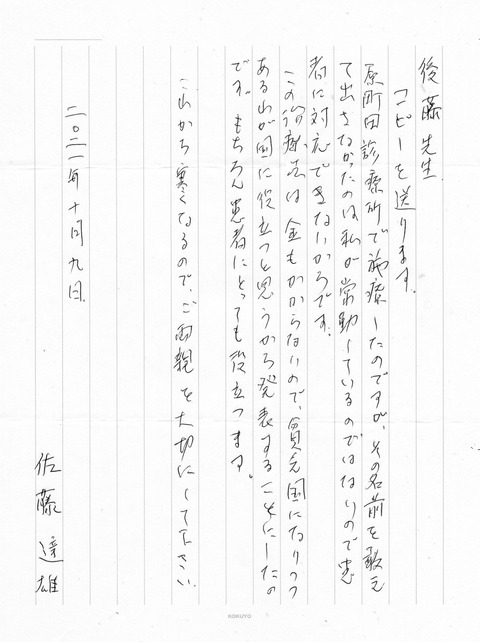 後藤先生
コピーを送ります。
原町田診療所で施療したのですが、その名前を敢え
て出さなかったのは私が常勤しているのではないので患
者に対応できないからです。
この治療法は金もかからないので、貧乏国になりつつ
あるわが国に役立つと思うから発表することにしたの
です。もちろん患者にとっても役立つます。
これから寒くなるので、ご両親を大切にして下さい。
二〇二一年十月九日
佐藤達雄
KOKUYO